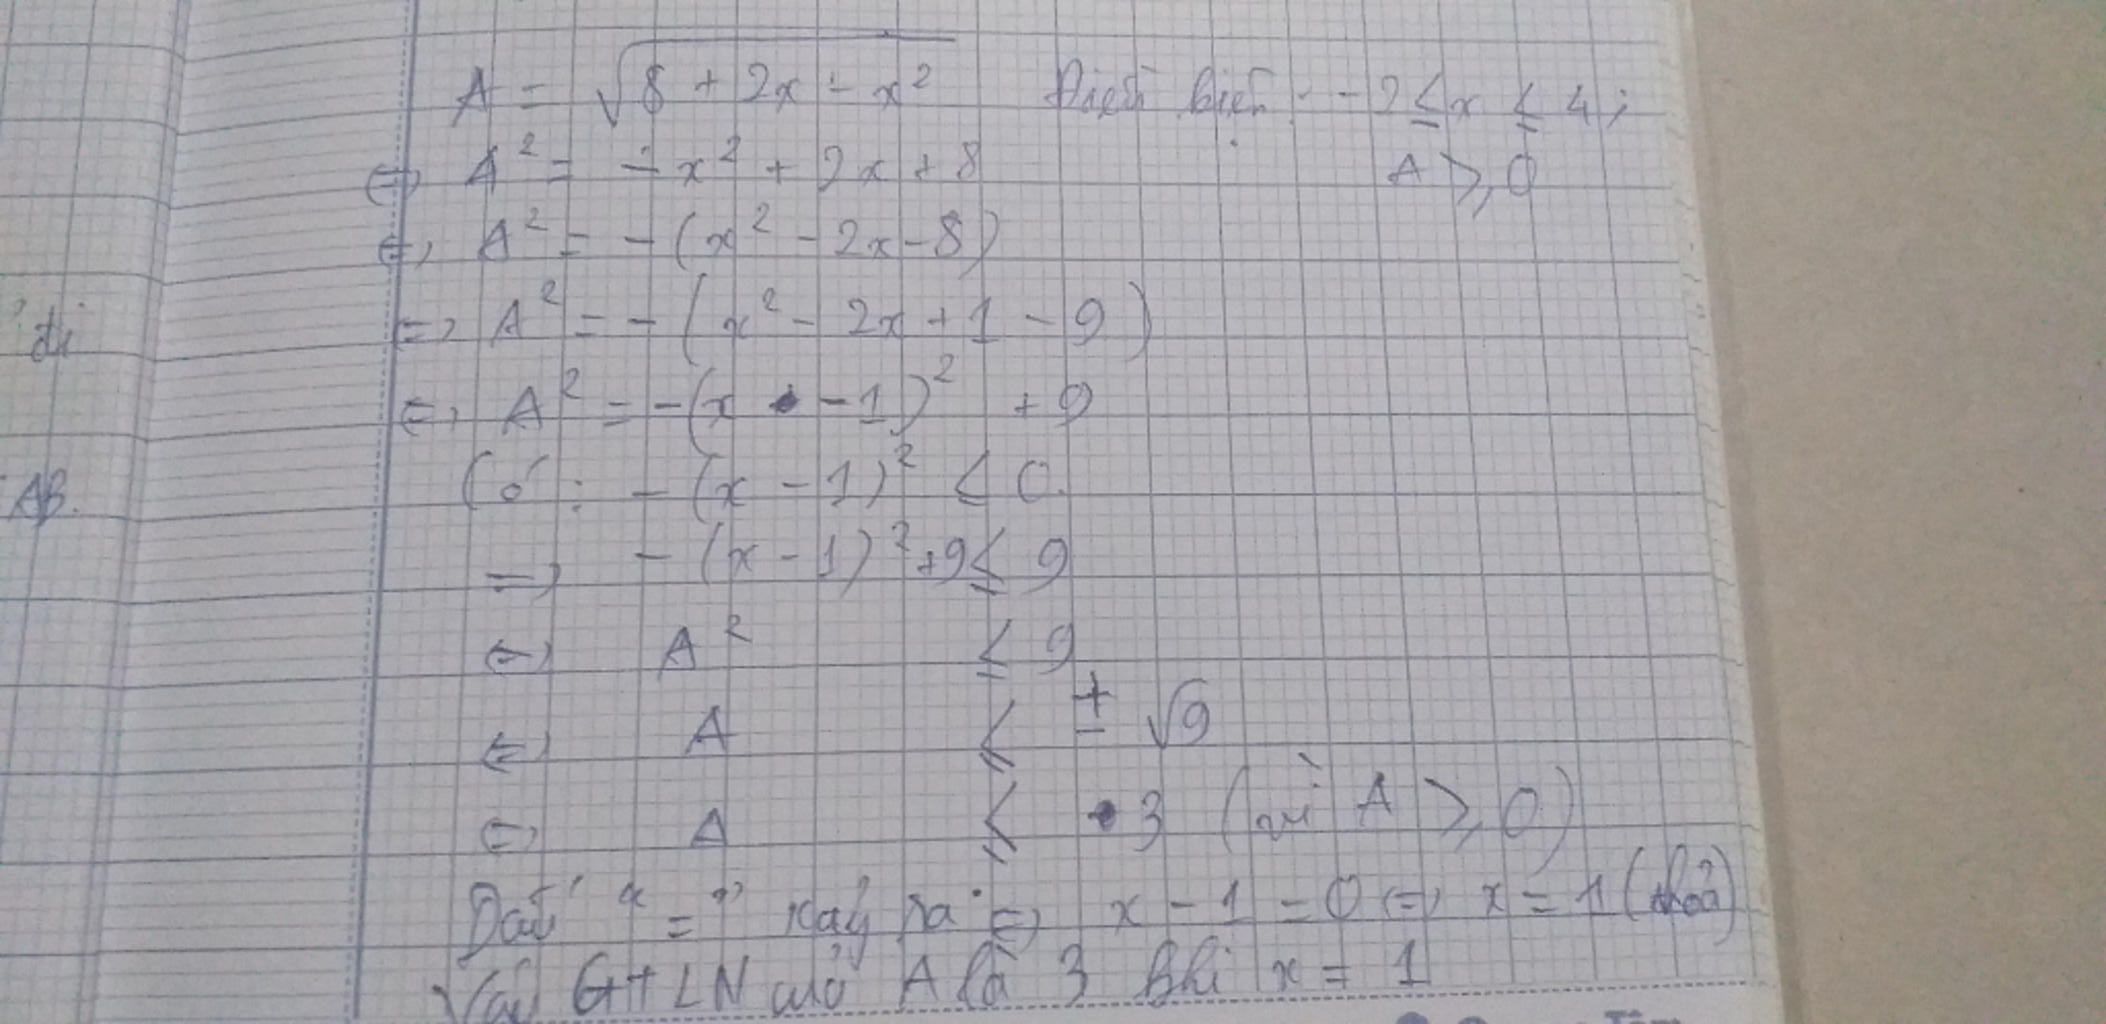 A = √(8 + 2x - x²) Điều kiện: -2 ≤ x ≤ 4;
⇔ A² = - x² + 2x + 8 A ≥ 0
⇔ A² = - (x² - 2x - 8)
⇔ A² = - (x² - 2x + 1 - 9)
⇔ A² = - (x - 1)² + 9
Có: - (x - 1)² ≤ 0
⇒ - (x - 1)² + 9 ≤ 9
⇔ A² ≤ 9
⇔ A ≤ ± √9
⇔ A ≤ 3 (vì A ≥ 0)
Dấu "=" xảy ra ⇔ x - 1 = 0 ⇔ x = 1 (thoả)
Vậy GTLN của A là 3 khi x = 1
đi
AB.